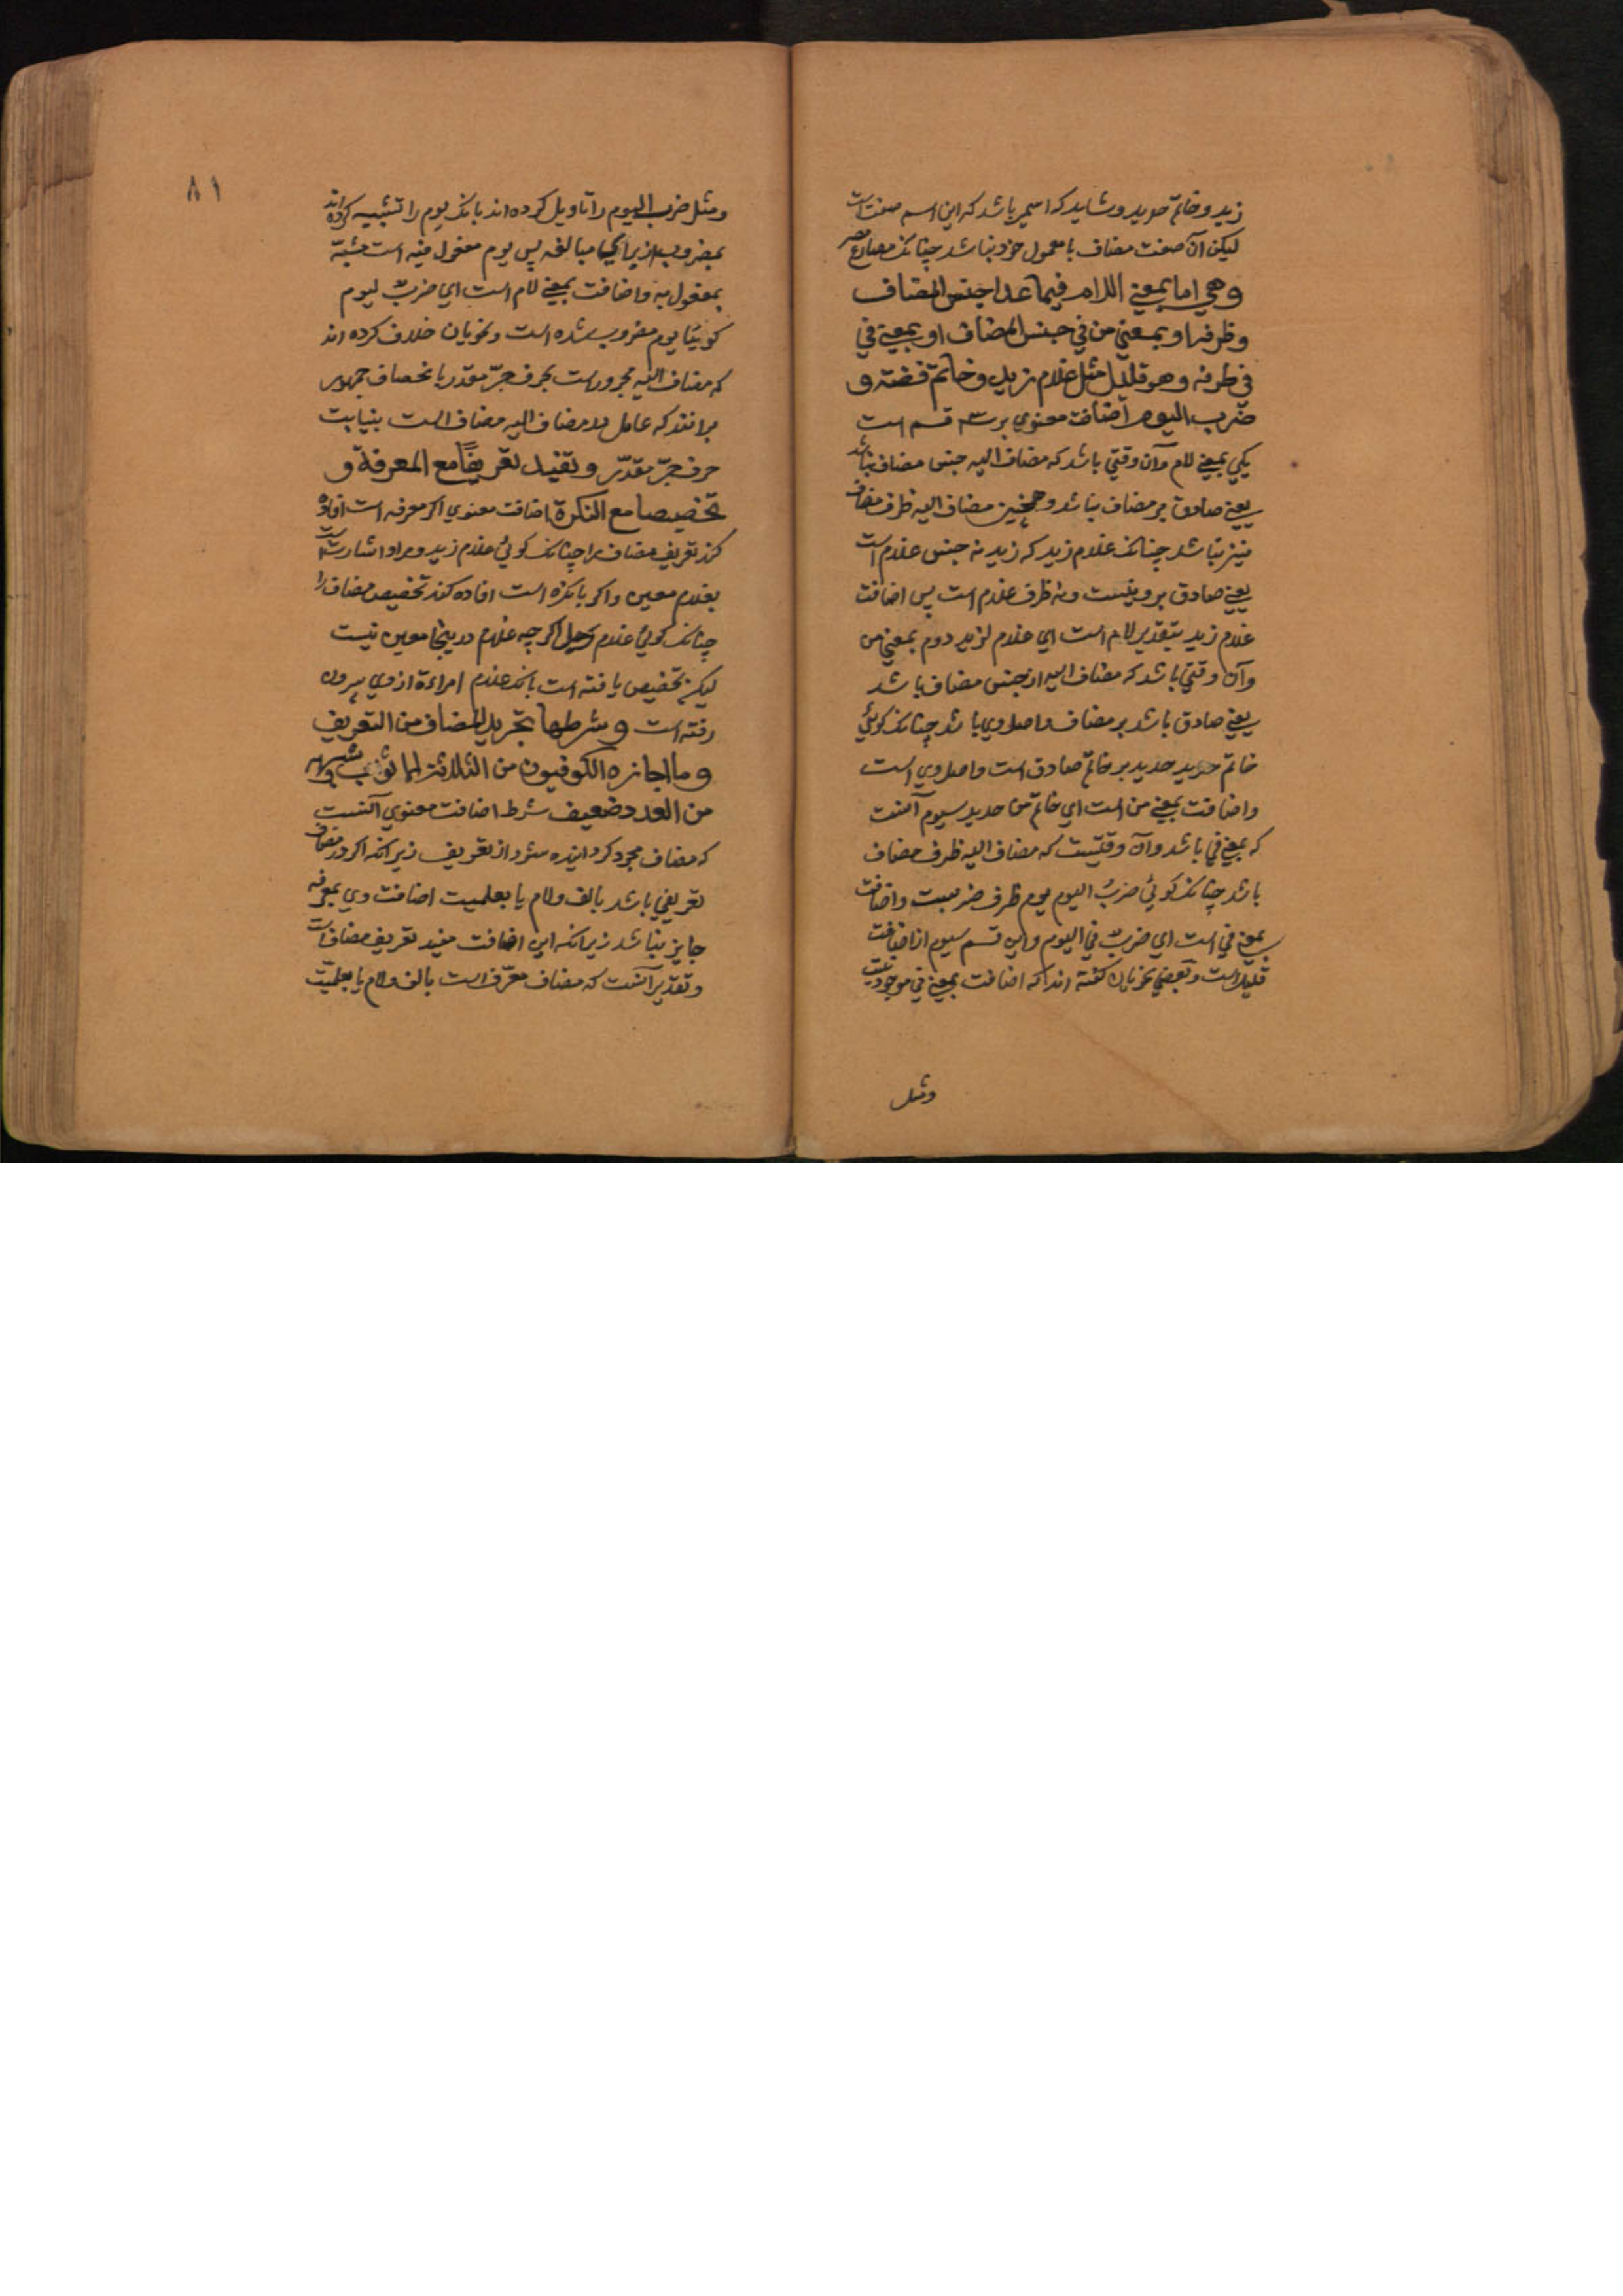 زید و خاتم حدید و شاید که اسمی باشد که این اسم صفت است
لیکن آن صفت مضاف با معمول خود نباشد چنانک مصارع مصر
وهي اما بمعنى اللام فيما عدا جنس المضاف
وظرفه او بمعنى من في جنس المضاف او بمعنى في
في ظرفه وهو قليل مثل غلام زيد وخاتم فضة و
ضرب اليوم اضافت معنوی بر سه قسم است
یکی بمعنی لام و آن وقتی باشد که مضاف الیه جنس مضاف نباشد
یعنی صادق بر مضاف نباشد و همچنین مضاف الیه ظرف مضاف
نیز نباشد چنانک غلام زید که زید نه جنس غلام است
یعنی صادق بر وی نیست و نه ظرف غلام است پس اضافت
غلام زید بتقدیر لام است ای غلام لزید دوم بمعنی من
و آن وقتی باشد که مضاف الیه از جنس مضاف باشد
یعنی صادق باشد بر مضاف و اصل وی باشد چنانک کوئی
خاتم حدید حدید بر خاتم صادق است و اصل وی است
و اضافت بمعنی من است ای خاتم من حدید سیوم آنست
که بمعنی فی باشد و آن وقتیست که مضاف الیه ظرف مضاف
باشد چنانک کوئی ضرب الیوم یوم ظرف ضربست و اضافت
بمعنی فی است ای ضرب فی الیوم و این قسم سیوم از اضافت
قلیل است و بعضی نحویان کفته اند که اضافت بمعنی فی موجود نیست
ومثل
۸۱
ومثل ضرب الیوم را تاویل کرده اند بانک یوم را تشبیه کرده اند
بمضروب از برای مبالغه پس یوم مفعول فیه است مشبه
بمفعول به و اضافت بمعنی لام است ای ضرب لیوم
کوئیا یوم مضروب شده است و نحویان خلاف کرده اند
که مضاف الیه مجرورست بحرف جر مقدر یا بمضاف جمهور
برانند که عامل در مضاف الیه مضاف است بنیابت
حرف جر مقدر وتفيد تعريفا مع المعرفة و
تخصيصا مع النكرة اضافت معنوی اکر معرفه است افاده
کند تعریف مضاف را چنانک کوئی غلام زید و مراد اشارتست
بغلام معین و اکر با نکره است افاده کند تخصیص مضاف را
چنانک کوئی غلام رجل اکرچه غلام در ینجا معین نیست
لیکن تخصیص یافته است بانک غلام امراءة از وی بیرون
رفته است وشرطها تجريد المضاف من التعريف
وما اجازه الكوفيون من الثلاثة الاثواب وشبهه
من العدد ضعيف شرط اضافت معنوی آنست
که مضاف مجرد کردانیده شود از تعریف زیرانک اکر در مضاف
تعریفی باشد بالف و لام یا بعلمیت اضافت وی بمعرفه
جایز نباشد زیرانک این اضافت مفید تعریف مضاف است
و تقدیر آنست که مضاف معرف است بالف و لام یا بعلمیت